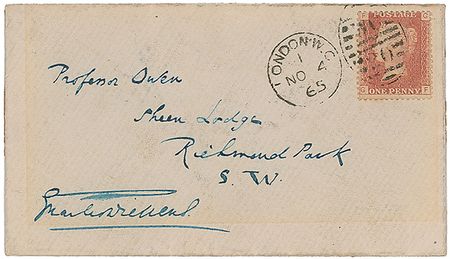 LONDON·W.C
1
NO 4
65
POSTAGE
ONE PENNY
Professor Owen
Sheen Lodge
Richmond Park
S. W.
Charles Dickens